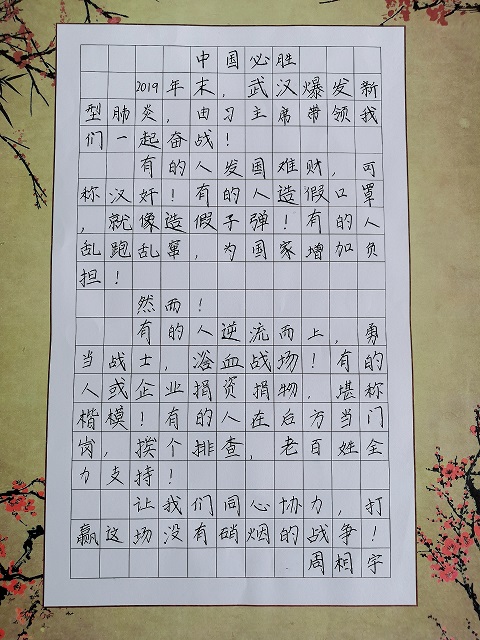 中国必胜
2019年末，武汉爆发新
型肺炎，由习主席带领我
们一起奋战！
有的人发国难财，可
称汉奸！有的人造假口罩
，就像造假子弹！有的人
乱跑乱窜，为国家增加负
担！
然而！
有的人逆流而上，勇
当战士，浴血战场！有的
人或企业捐资捐物，堪称
楷模！有的人在后方当门
岗，挨个排查，老百姓全
力支持！
让我们同心协力，打
赢这场没有硝烟的战争！
周相宇